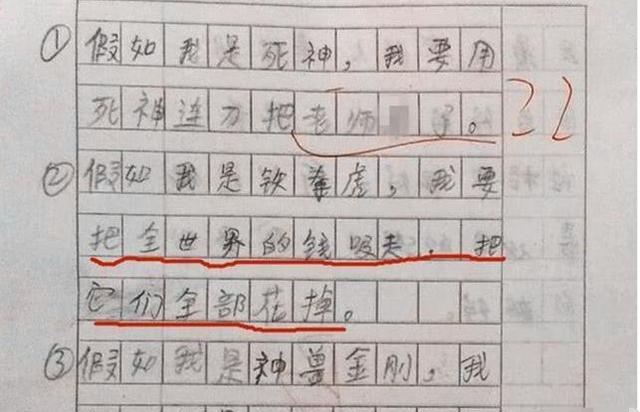 ①假如我是死神，我要用
死神连刀把老师 了。 22
②假如我是铁拳虎，我要
把全世界的钱吸夫，把
它们全部花掉。
③假如我是神兽金刚，我